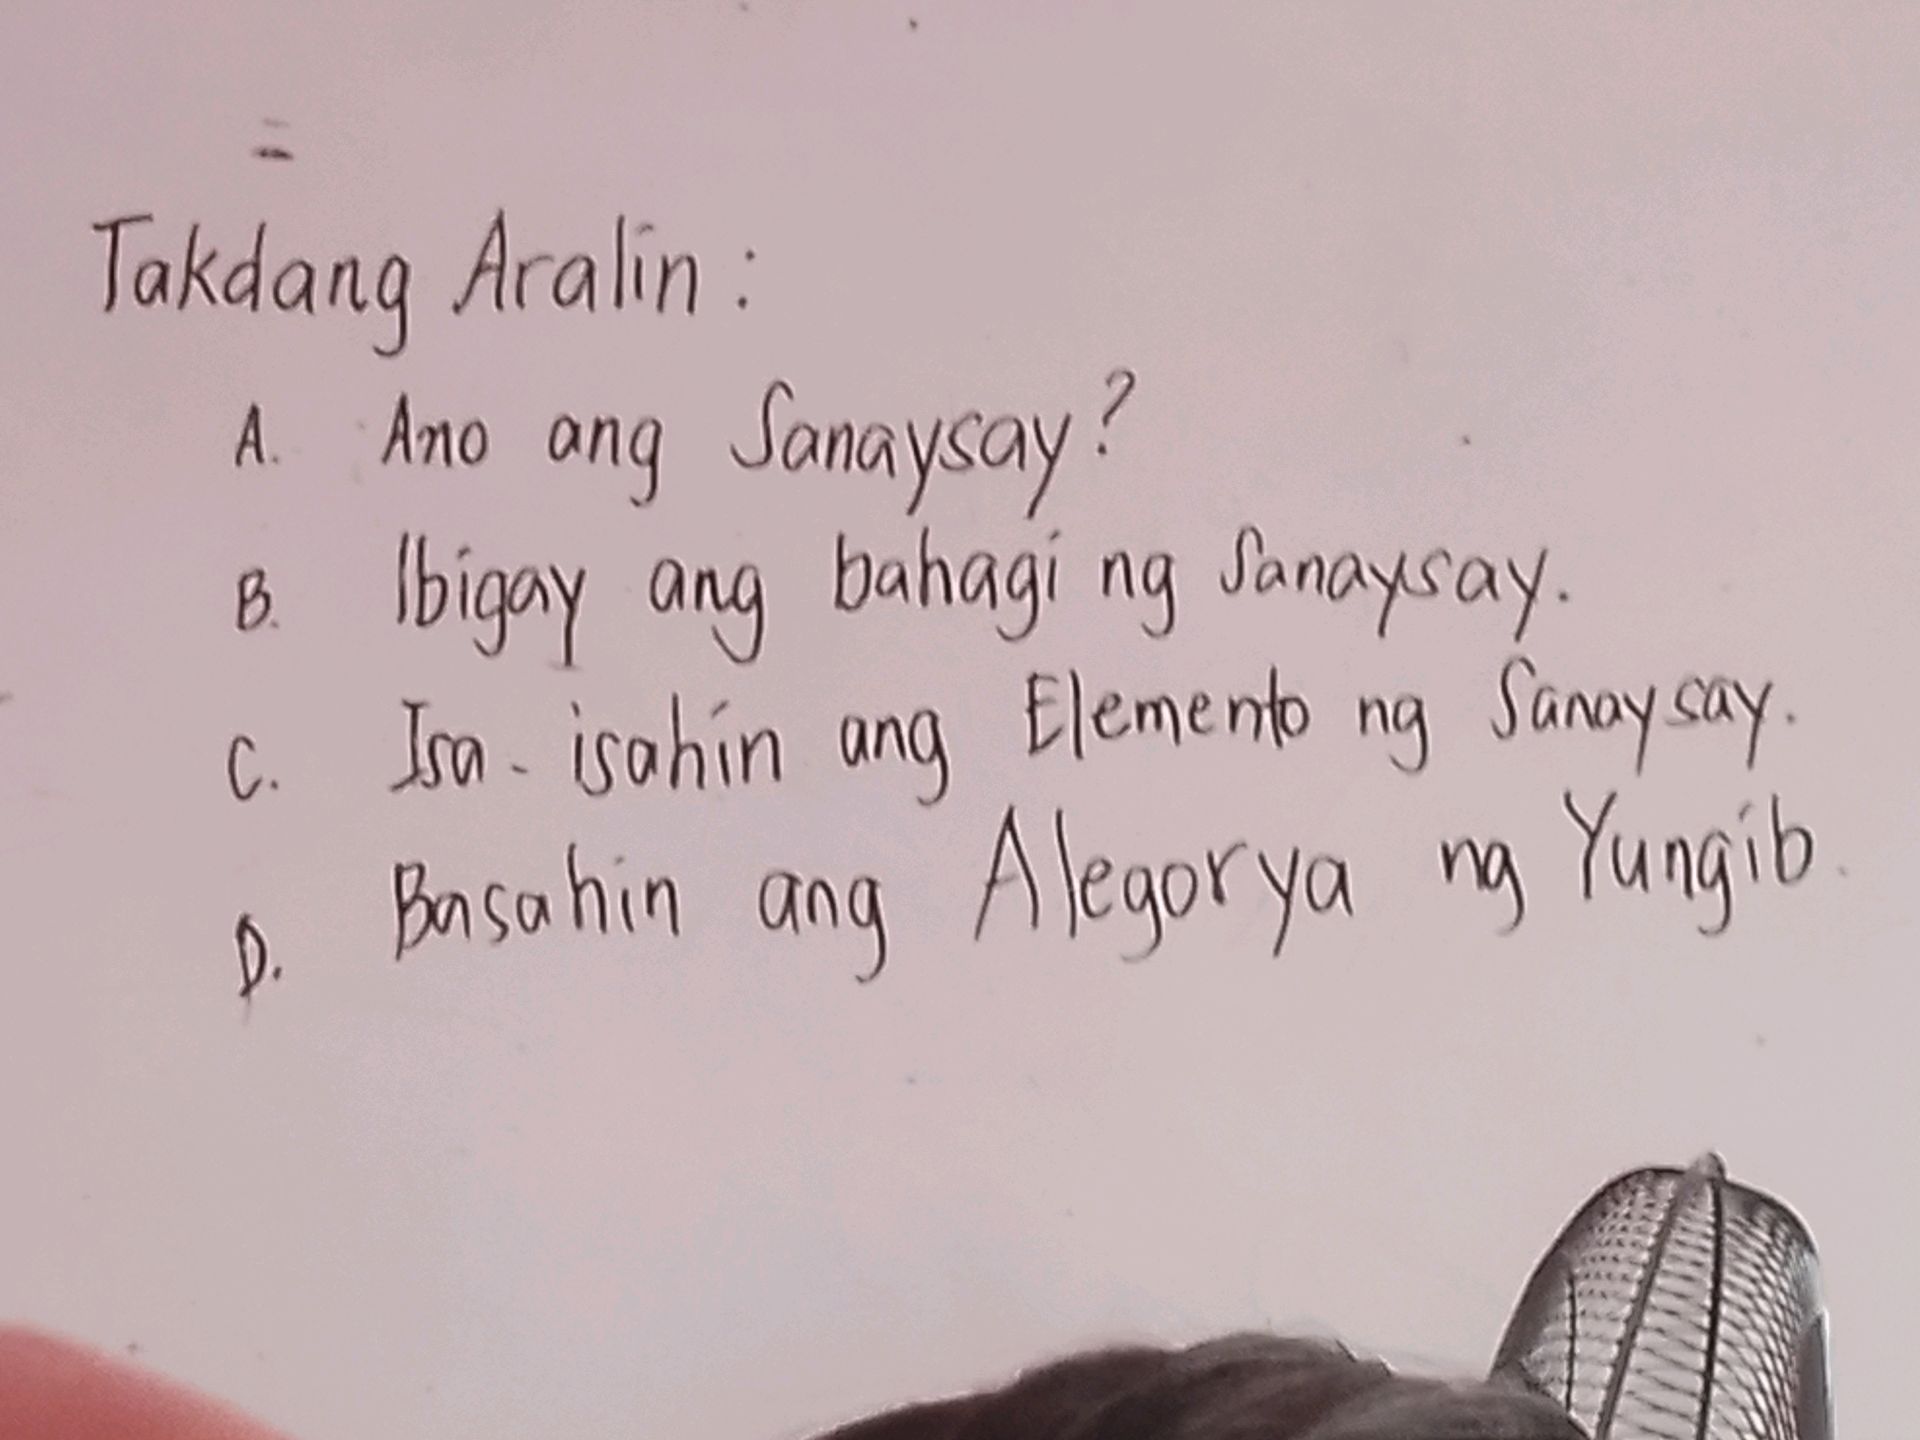 Takdang Aralin :
A. Ano ang Sanaysay?
B. Ibigay ang bahagi ng Sanaysay.
C. Isa-isahin ang Elemento ng Sanaysay.
D. Basahin ang Alegorya ng Yungib.